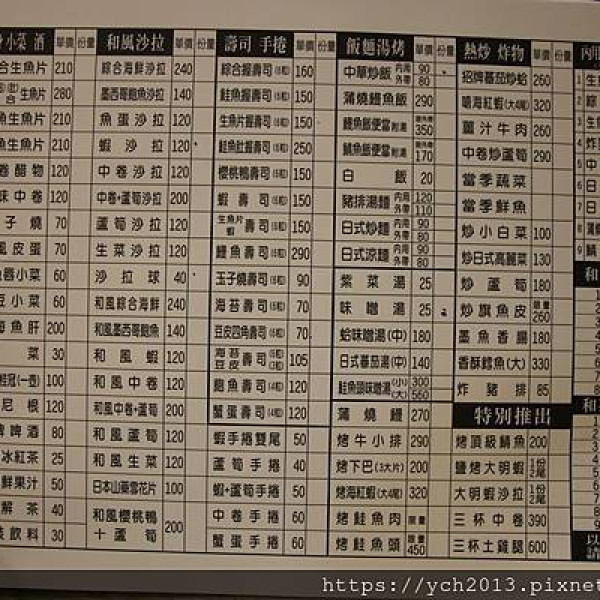 小菜 酒 單價 份量
合生魚片 210
生魚片 280
魚生魚片 210
魚生魚片 210
卷醋物 120
味中卷 120
子燒 70
風皮蛋 70
唇小菜 60
豆小菜 60
海魚肝 200
菜 30
桂冠(一壺) 100
尼根 120
啤啤酒 80
冰紅茶 25
鮮果汁 50
解茶 40
裝飲料 30
和風沙拉 單價 份量
綜合海鮮沙拉 240
墨西哥鮑魚沙拉 140
魚蛋沙拉 120
蝦沙拉 120
中卷沙拉 120
中卷+蘆筍沙拉 200
蘆筍沙拉 120
生菜沙拉 120
沙拉球 40
和風綜合海鮮 240
和風墨西哥鮑魚 140
和風蝦 120
和風中卷 120
和風中卷+蘆筍 200
和風蘆筍 120
和風生菜 120
日本山藥雪花片 100
和風櫻桃鴨+蘆筍 200
壽司 手捲 單價 份量
綜合握壽司(6粒) 160
鮭魚握壽司(5粒) 150
生魚片握壽司(5粒) 150
鮭魚肚握壽司(5粒) 250
櫻桃鴨壽司(5粒) 150
蝦壽司(5粒) 150
生魚片蝦壽司(5粒) 150
鰻魚壽司(5粒) 290
玉子燒壽司(6粒) 90
海苔壽司(6粒) 70
豆皮四角壽司(6粒) 70
海苔豆皮壽司 105
鮑魚壽司(4粒) 120
蟹蛋壽司(4粒) 120
蝦手捲雙尾 50
蘆筍手捲 40
蝦+蘆筍手捲 50
中卷手捲 60
蟹蛋手捲 60
飯麵湯烤 單價 份量
中華炒飯 內用 90 外帶 80
蒲燒鰻魚飯 290
鰻魚飯便當附湯 限外帶 350
鯖魚飯便當附湯 限外帶 170
白飯 20
豬排湯麵 內用 120 外帶 110
日式炒麵 內用 90 外帶 80
日式涼麵 內用 90 外帶 80
紫菜湯 25
味噌湯 25
蛤味噌湯(中) 180
日式蕃茄湯(中) 140
鮭魚頭味噌湯 (小) 300 (大) 560
蒲燒鰻 270
烤牛小排 290
烤下巴(3大片) 200
烤海紅蝦(大4尾) 320
烤鮭魚肉 限量
烤鮭魚頭 限量 450
熱炒 炸物 單價 份量
招牌蕃茄炒蛤 260
嗆海紅蝦(大4尾) 320
薑汁牛肉 260
中卷炒蘆筍 290
當季蔬菜
當季鮮魚
炒小白菜 100
炒日式高麗菜 130
炒蘆筍 180
炒旗魚皮 限量 260
墨魚香腸 180
香酥鱈魚(大) 330
炸豬排 85
特別推出
烤頂級鯖魚 200
鹽烤大明蝦 1份2尾
大明蝦沙拉 1份2尾
三杯中卷 390
三杯土雞腿 600
內用
1 生
2 綜
3 生
4 炸
5 中
6 日
7 日
8 蒲
9 鯖
和
1
2
3
4
5
6
7
8
和
1
2
3
4
5
6
7
8
9
以
請
https://ych2013.pixne